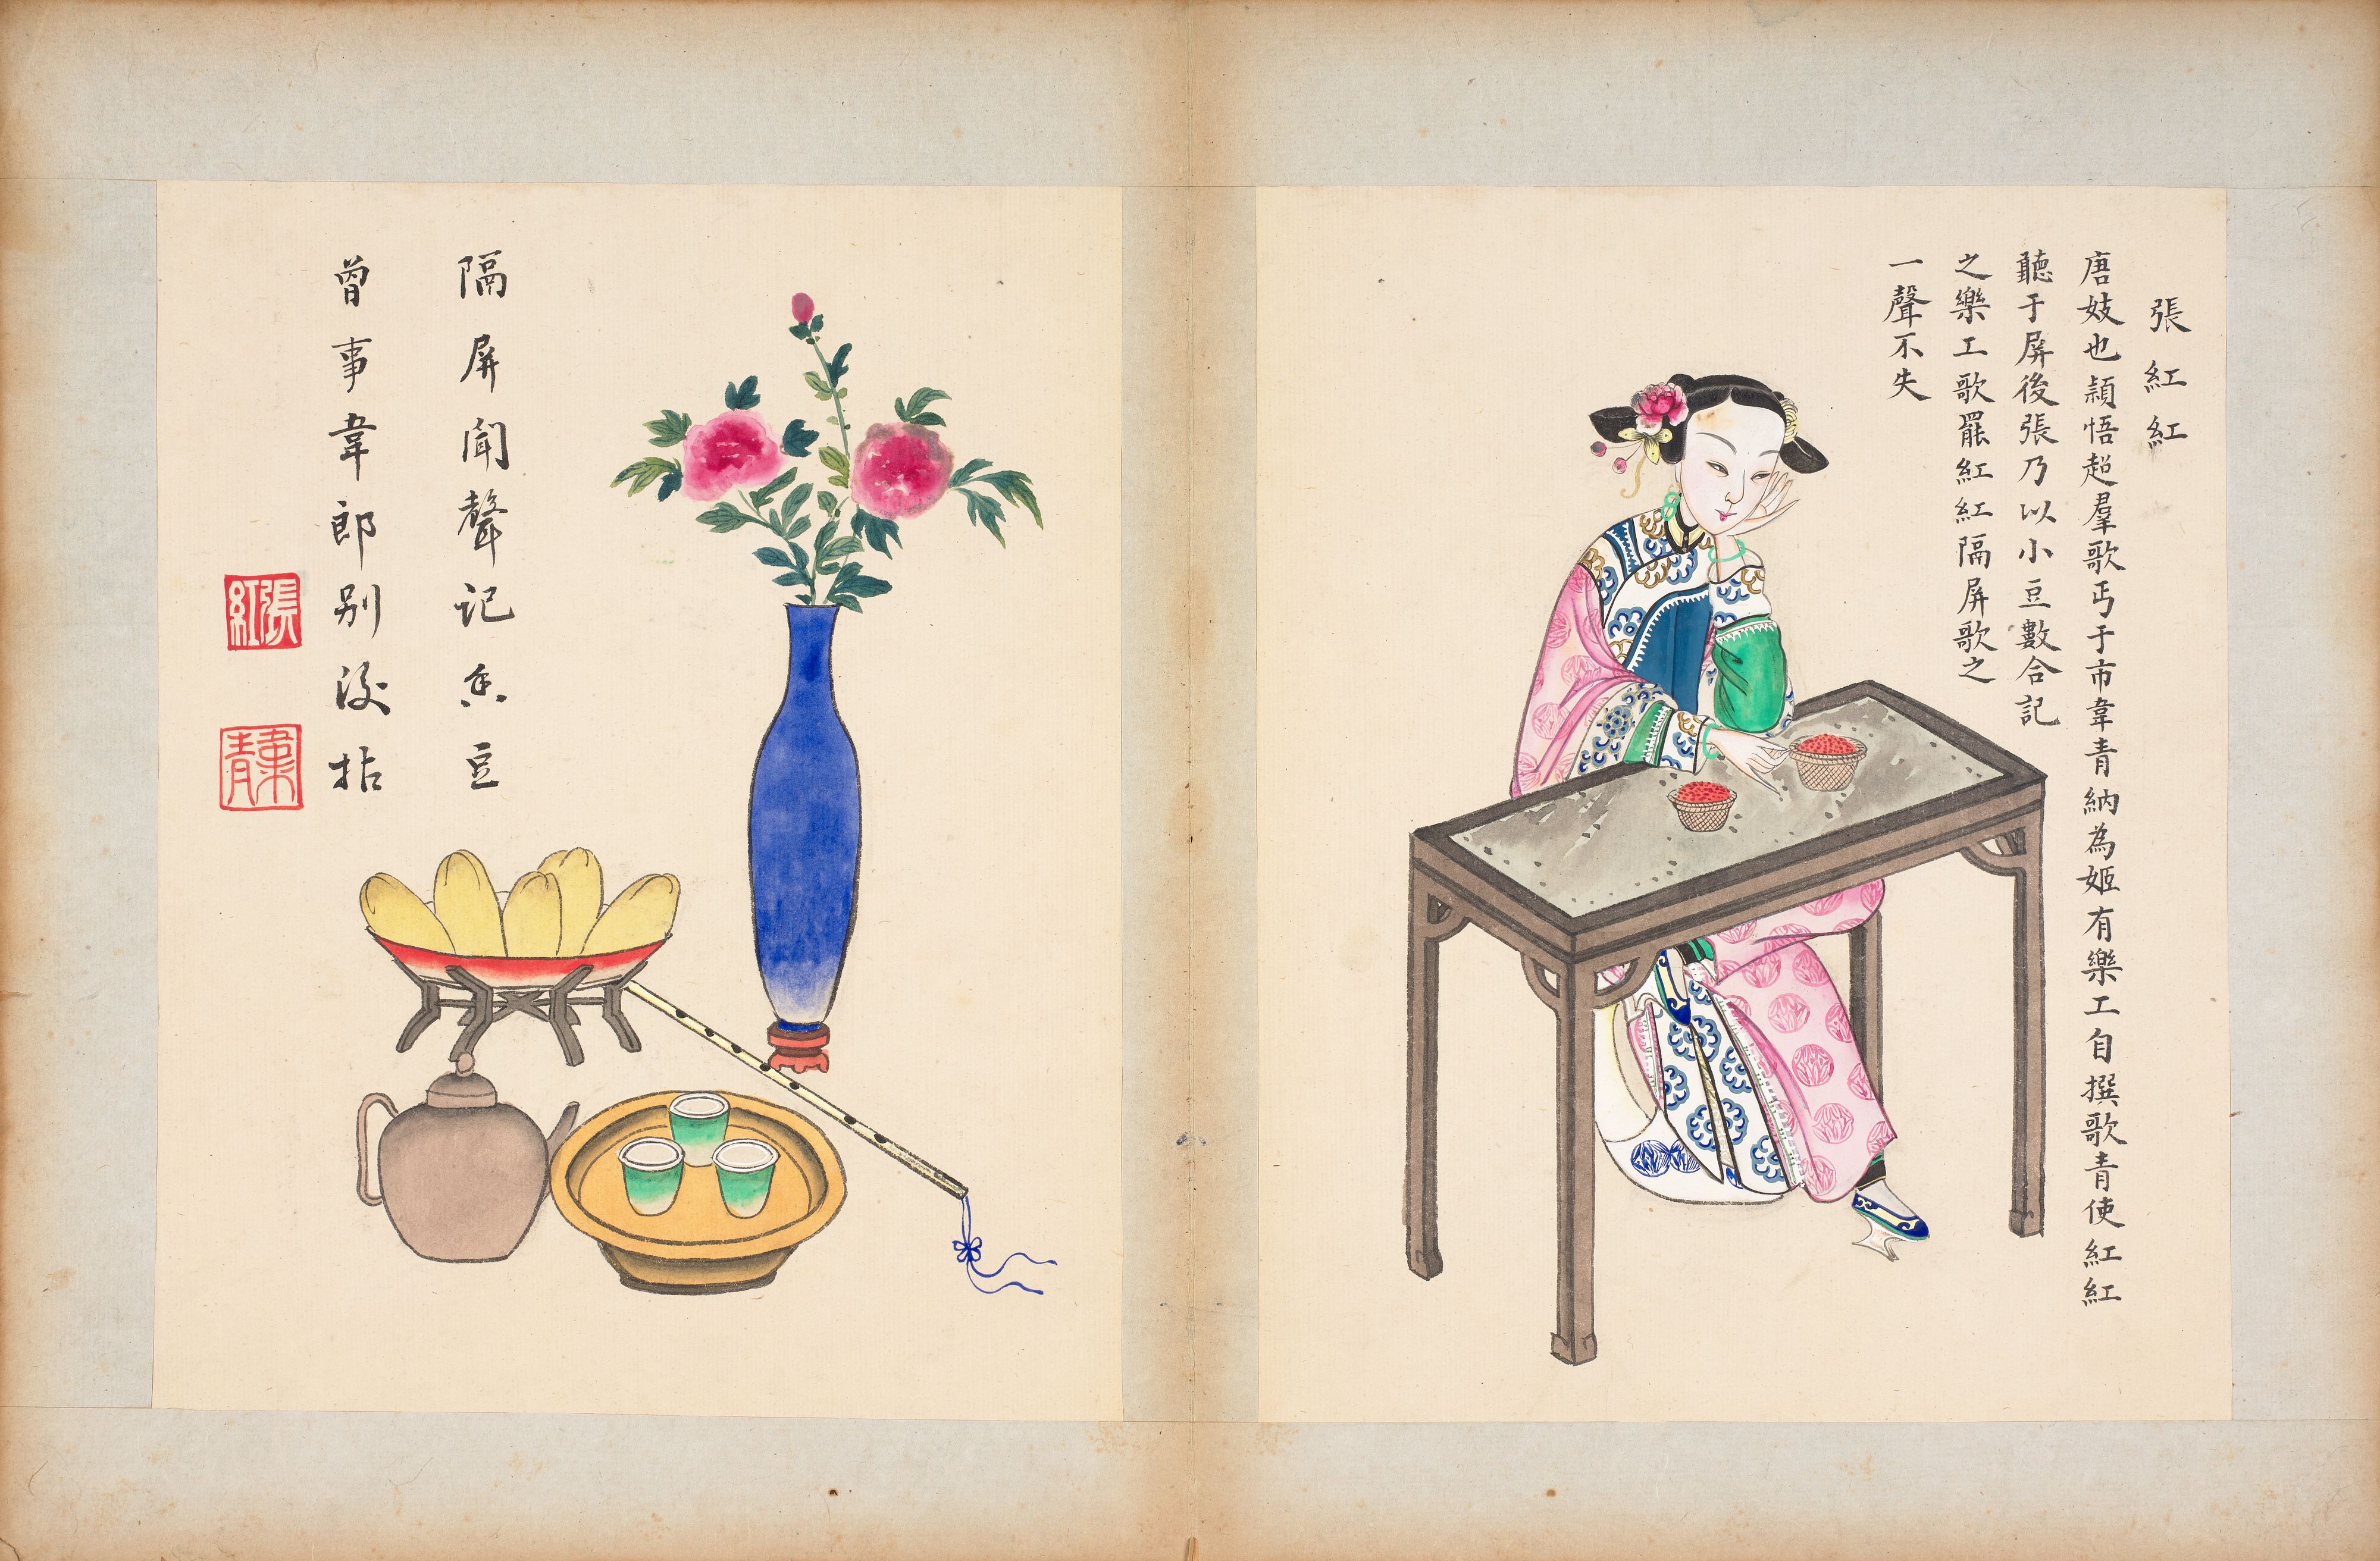 張紅紅
唐妓也頴悟超羣歌丐于市韋青納為姬有樂工自撰歌青使紅紅
聽于屏後張乃以小豆數合記
之樂工歌罷紅紅隔屏歌之
一聲不失
隔屏聞聲记豆
曾事韋郎别後拈
張紅
韋青